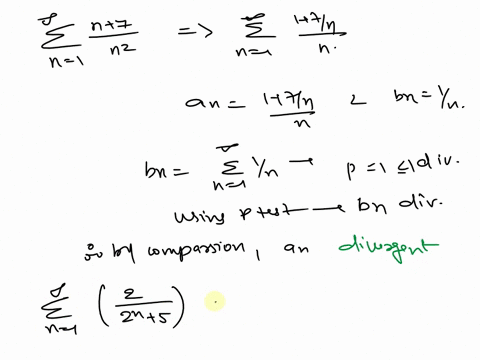 ∞ ∑ n=1 n+7/n2 => ∞ ∑ n=1 1+7/n/n.
an = 1+7/n/n & bn = 1/n.
bn = ∞ ∑ n=1 1/n → p = 1 ≤ 1 div.
using p test → bn div.
∴ by comparssion, an divergent
∞ ∑ n=1 (2/2n+5)